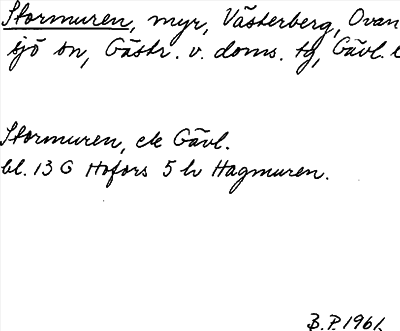 Stormuren, myr, Västerberg, Ovan
sjö sn, Gästr. v. doms. tg, Gävl. l
Stormuren, ek Gävl.
bl. 13 G Hofors 5 h Hagmuren.
B.P. 1961.